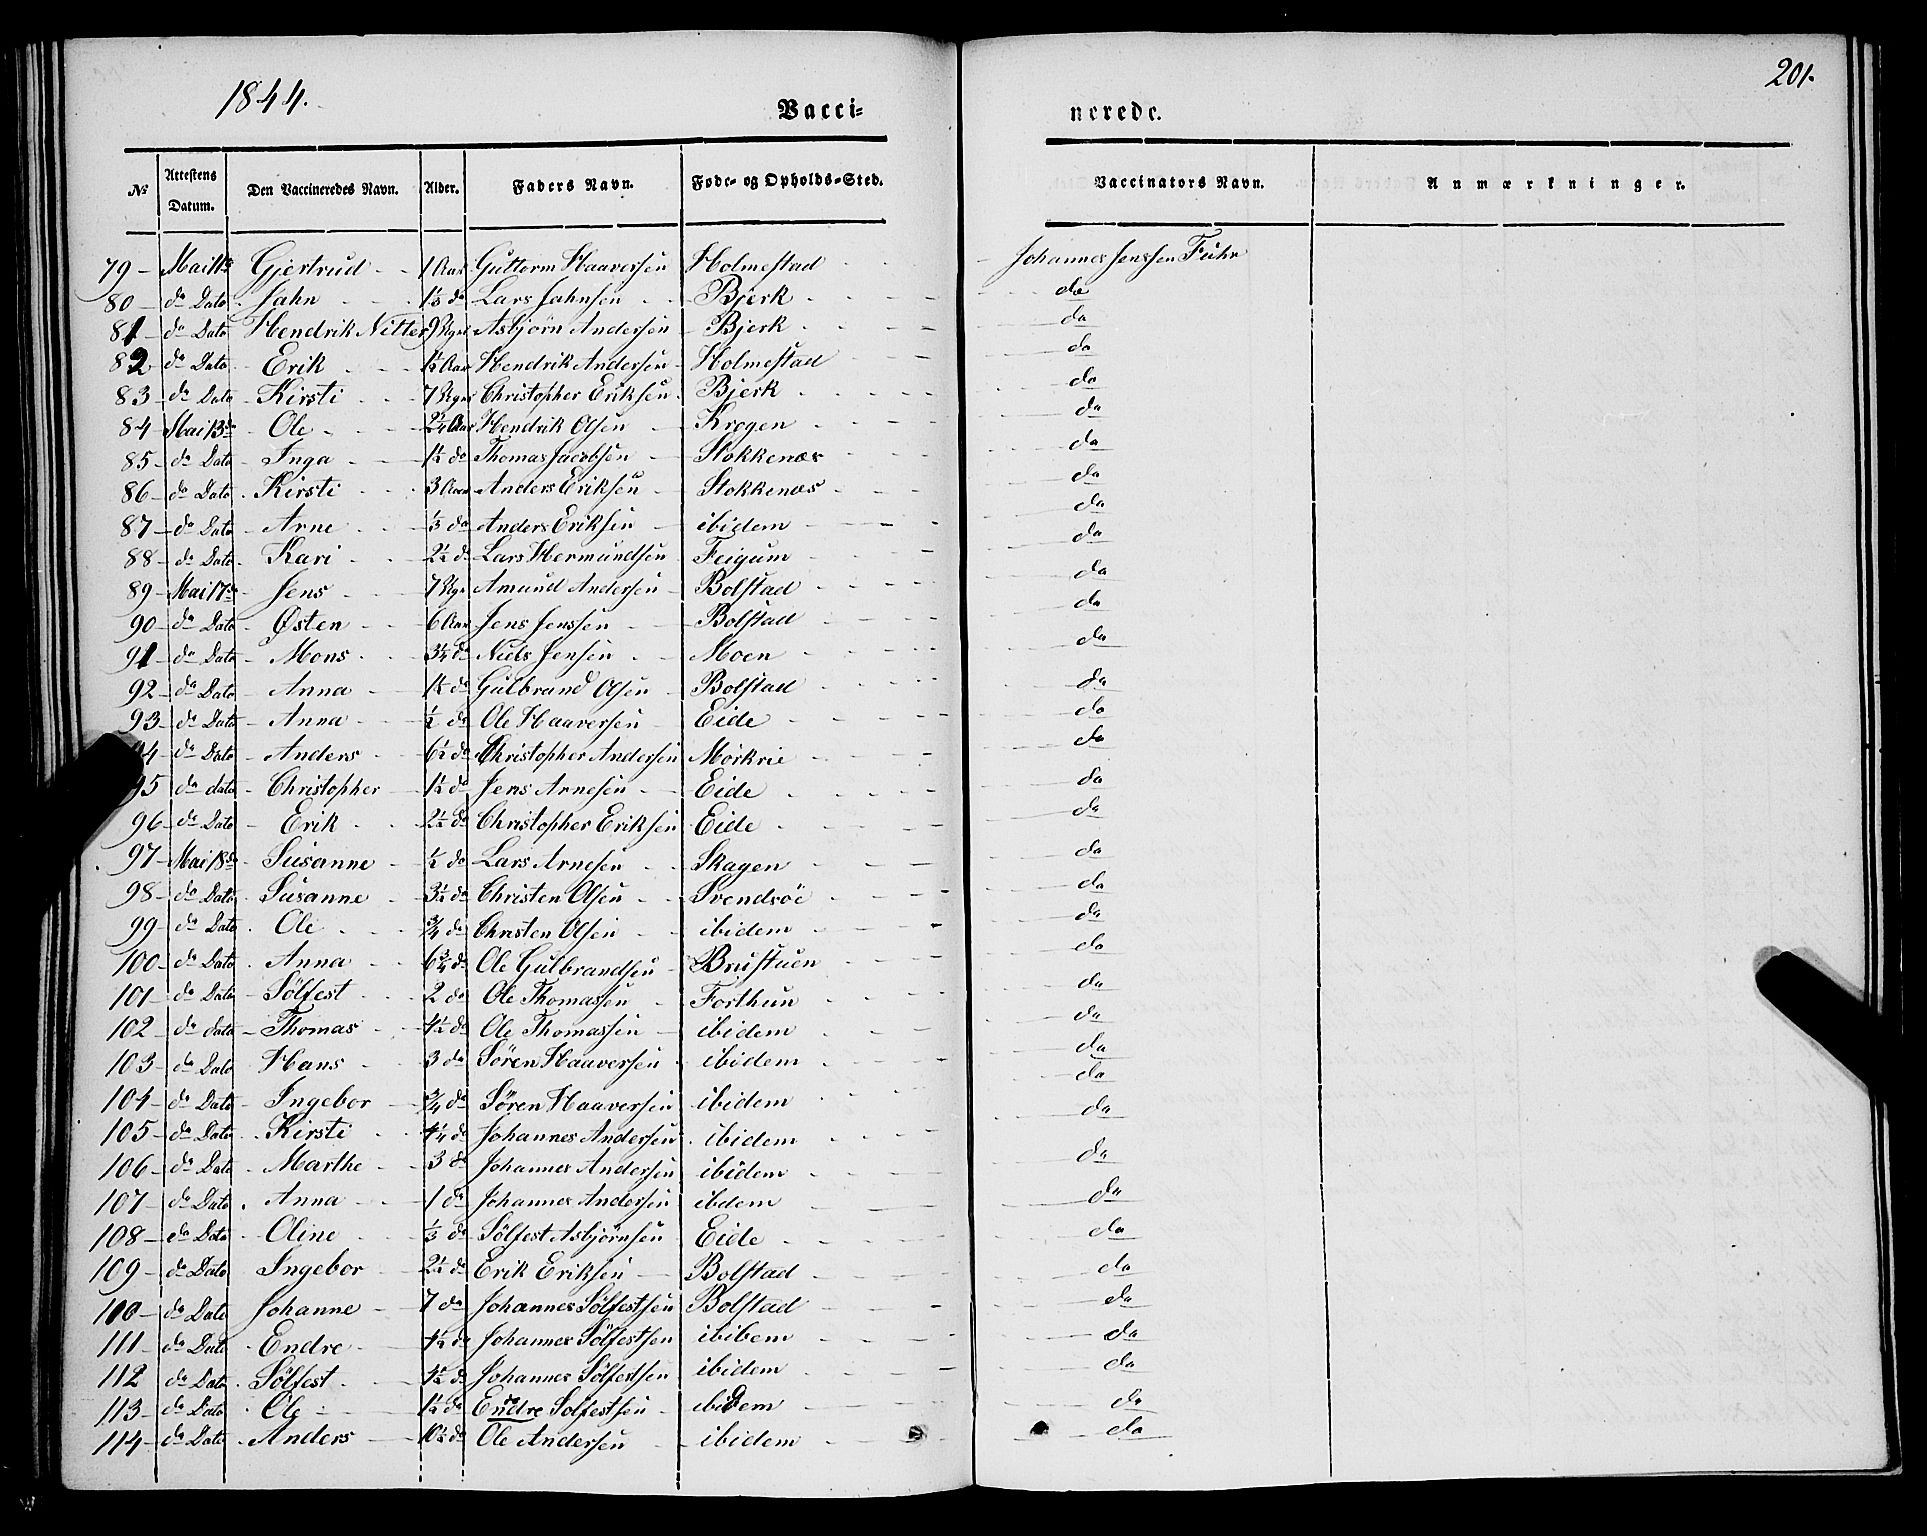 1844.
201.
Vacci=
nerede.
No Attestens Datum. Den Vaccineredes Navn. Alder. Faders Navn. Føde- og Opholds-Sted. Vaccinators Navn. Anmærkninger.
79 – Mai 11te Gjertrud 1 Aar Guttorm Haaversen Holmestad Johannes Jenssen Fuhr
80 – do Dato Jahn 1 1/3 do Lars Jahnsen Bjerk do
81 – do Dato Hendrik Nitter 9 Uger Asbjörn Andersen Bjerk do
82 do Dato Erik 1 1/2 Aar Hendrik Andersen Holmestad do
83 – do Dato Kirsti 7 Uger Christopher Eriksen Bjerk do
84 – Mai 13de Ole 2 1/4 Aar Hendrik Olsen Krogen do
85 – do Dato Inga 1 1/2 do Thomas Jacobsen Stokkenæs do
86 – do Dato Kirsti 3 Aar Anders Eriksen Stokkenæs do
87 – do Dato Arne 1/3 do Anders Eriksen ibidem do
88 – do Dato Kari 2 1/2 do Lars Hermundsen Feigum do
89 – Mai 17de Jens 7 Uger Amund Andersen Bolstad do
90 – do Dato Østen 6 Aar Jens Jenssen Bolstad do
91 – do Dato Mons 3 1/4 do Niels Jensen Moen do
92 – do Dato Anna 1 1/2 do Gulbrand Olsen Bolstad do
93 – do Dato Anna 1/2 do Ole Haaversen Eide do
94 – do Dato Anders 6 1/2 do Christopher Andersen Mørkrie do
95 do dato Christopher 1 1/2 do Jens Arnesen Eide do
96 – do Dato Erik 2 1/2 do Christopher Eriksen Eide do
97 – Mai 18de Susanne 1/2 do Lars Arnesen Skagen do
98 – do Dato Susanne 3 1/2 do Christen Olsen Svendsöe do
99 – do Dato Ole 3/4 do Christen Olsen ibidem do
100 – do Dato Anna 6 3/4 do Ole Gulbrandsen Brustuen do
101 – do Dato Sölfest 2 do Ole Thomassen Forthun do
102 – do dato Thomas 4 1/2 do Ole Thomassen ibidem do
103 – do Dato Hans 3 do Sören Haaversen ibidem do
104 – do Dato Ingebor 3/4 do Sören Haaversen ibidem do
105 – do Dato Kirsti 4 1/4 do Johannes Andersen ibidem do
106 – do Dato Marthe 3 do Johannes Andersen ibidem do
107 – do Dato Anna 1 do Johannes Andersen ibdem do
108 – do Dato Oline 1/3 do Sölfest Asbjörnsen Eide do
109 – do Dato Ingebor 2 1/2 do Erik Eriksen Bolstad do
110 – do Dato Johanne 7 do Johannes Sölfestsen Bolstad do
111 – do Dato Endre 4 1/2 do Johannes Sölfestsen ibibem do
112 do Dato Sölfest 4 1/2 do Johannes Sölfestsen ibidem do
113 – do Dato Ole 1 1/2 do Endre Solfestsen ibidem do
114 – do Dato Anders 10 1/2 do Ole Andersen ibidem do